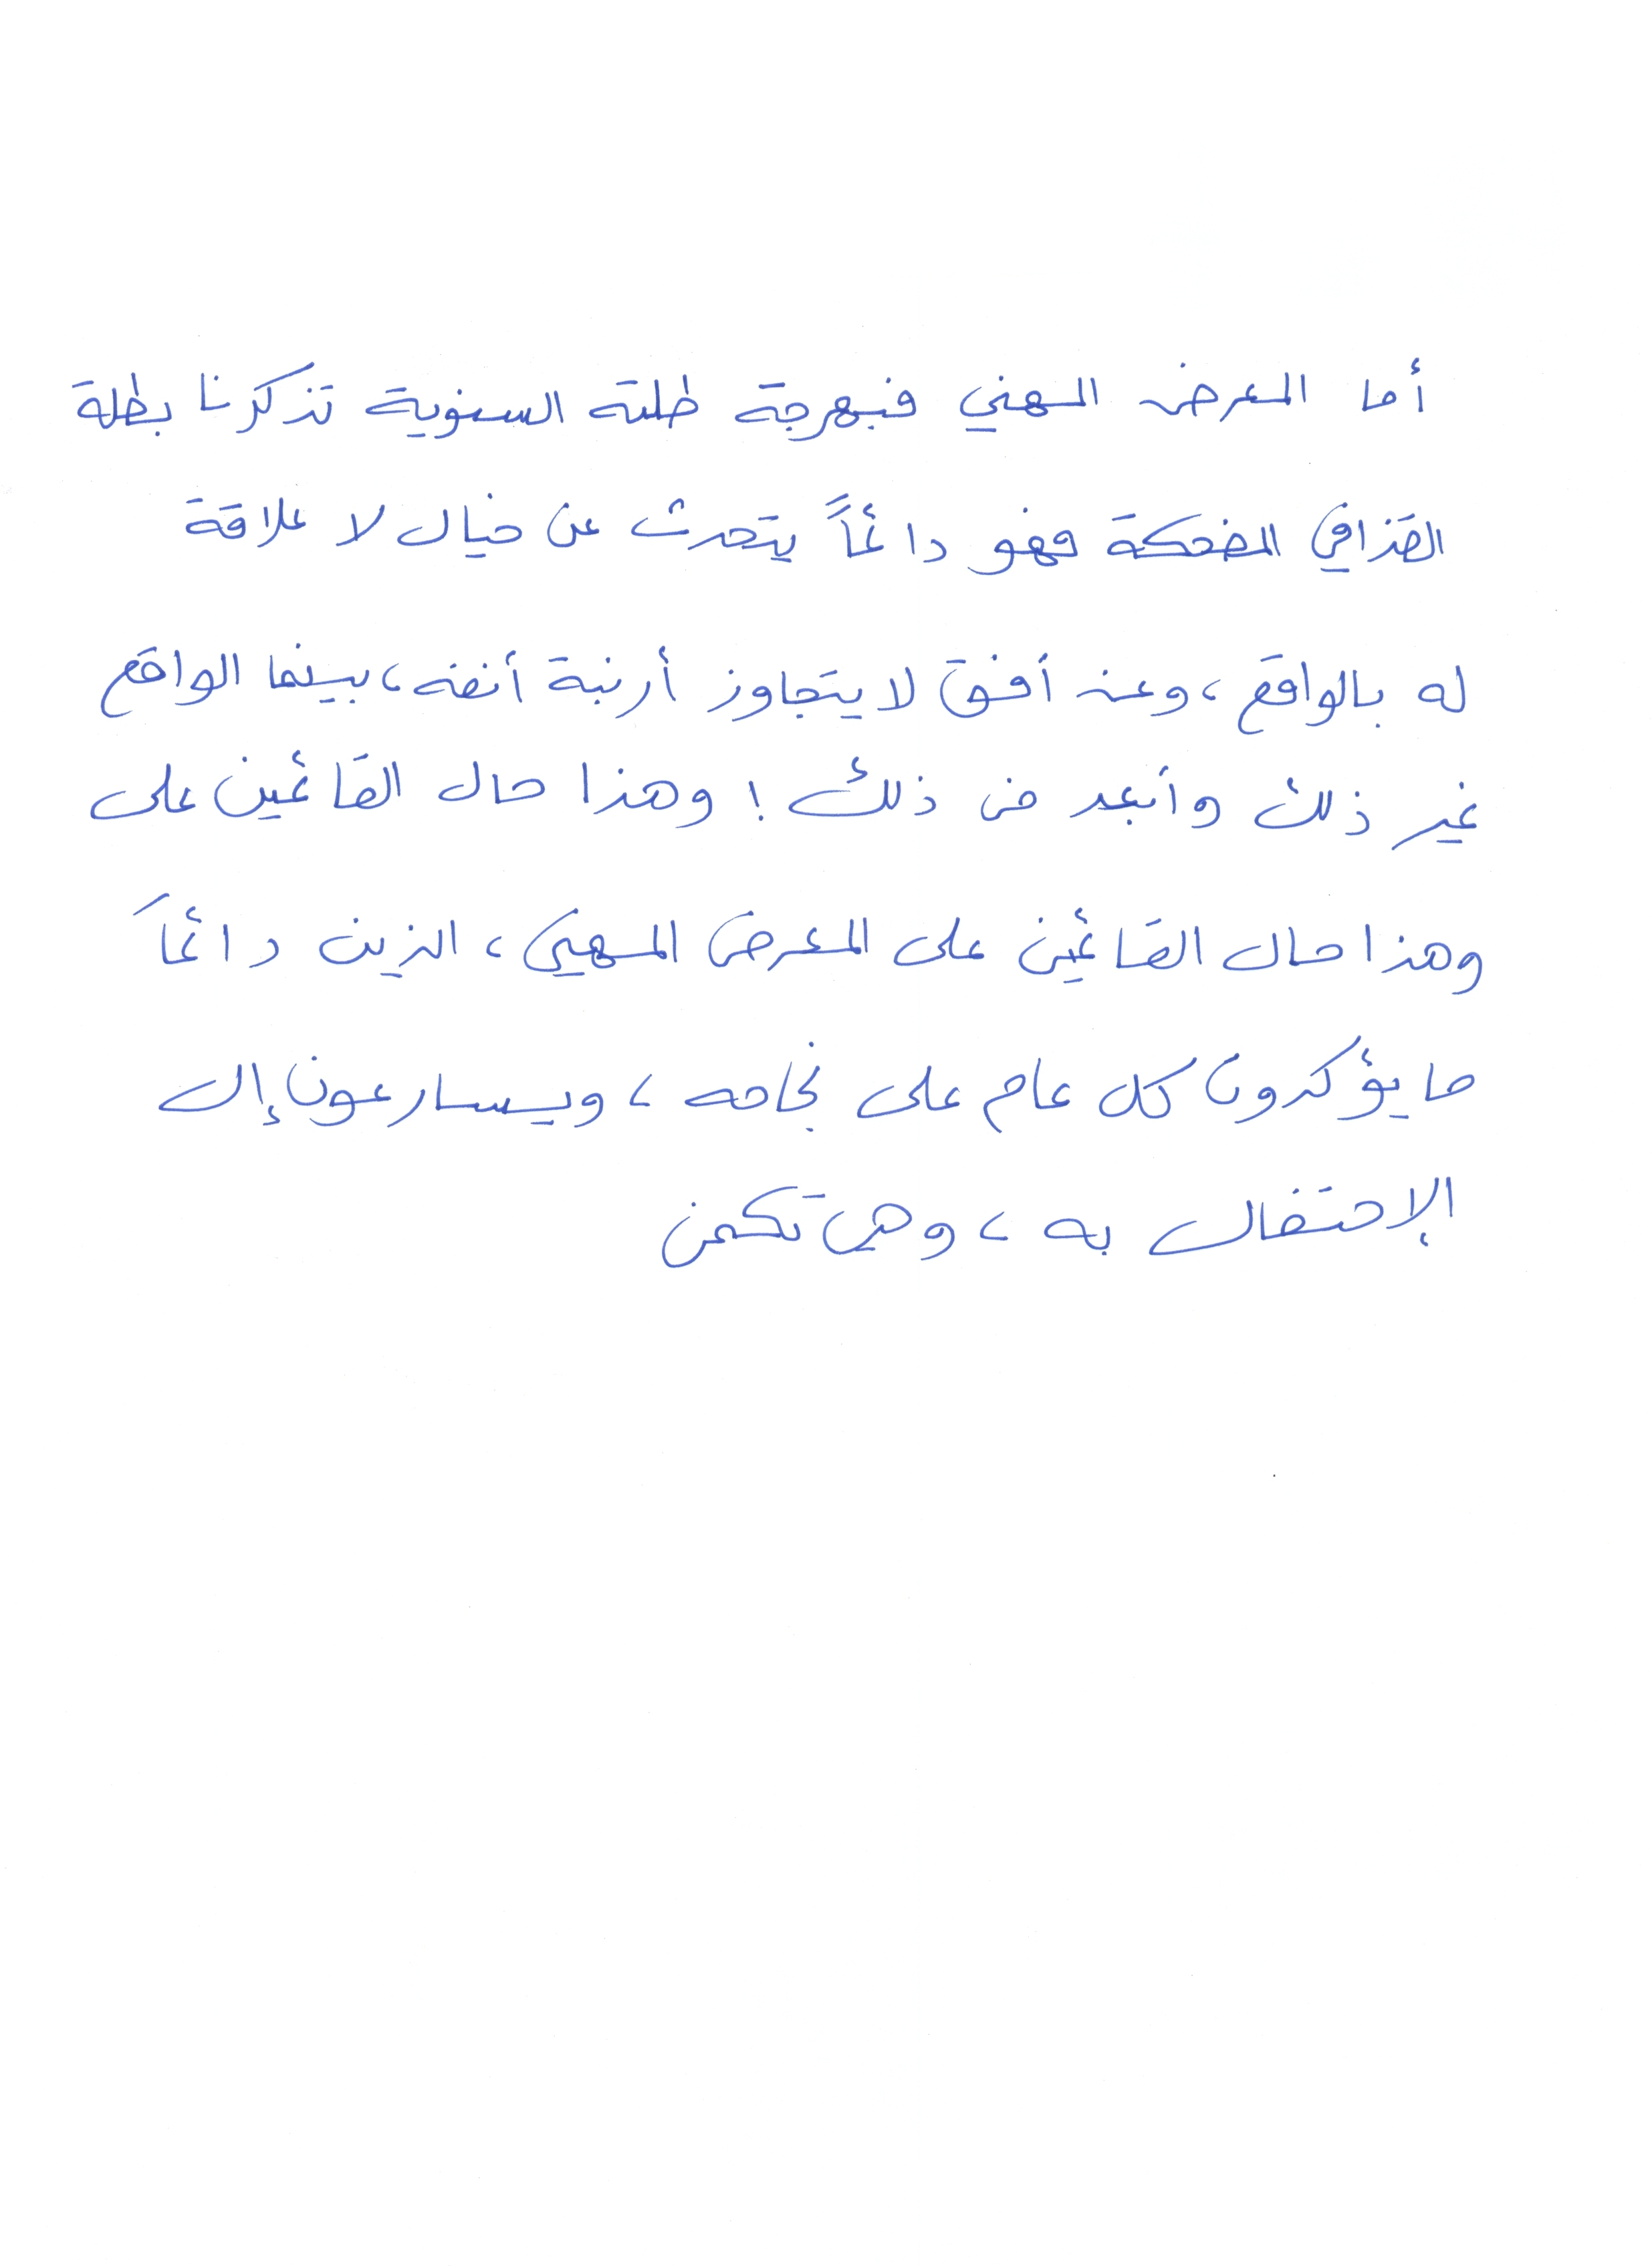 أما المعرض المهني فبهرجة طلته السنوية تذكرنا بطلة
القذافي المضحكة فهو دائماً يتحدث عن خيال لا علاقة
له بالواقع، وعن أفق لا يتجاوز أرنبة أنفه، بينما الواقع
غير ذلك وأبعد من ذلك! وهذا حال القائمين على
وهذا حال القائمين على المعرض المهني، الذين دائماً
ما يؤكدون كل عام على نجاحه، ويسارعون إلى
الإحتفال به، وهي تكمن